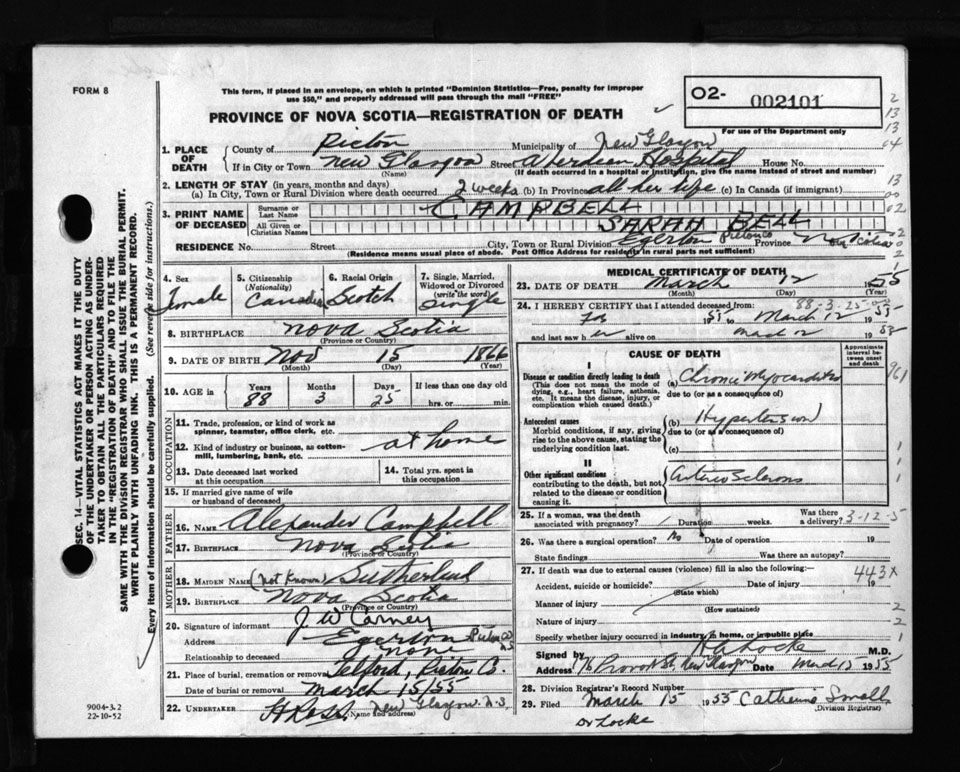 FORM 8
This form, if placed in an envelope, on which is printed "Dominion Statistics—Free, penalty for improper
use $50," and properly addressed will pass through the mail "FREE"
PROVINCE OF NOVA SCOTIA—REGISTRATION OF DEATH
O2- 002101
For use of the Department only
1. PLACE OF DEATH
County of Pictou Municipality of New Glasgow
If in City or Town New Glasgow Street Aberdeen Hospital House No.
(Name) (If death occurred in a hospital or institution, give the name instead of street and number)
2. LENGTH OF STAY (in years, months and days)
(a) In City, Town or Rural Division where death occurred 2 weeks (b) In Province all her life (c) In Canada (if immigrant)
3. PRINT NAME OF DECEASED
Surname or Last Name CAMPBELL
All Given or Christian Names SARAH BELL
RESIDENCE No. Street City, Town or Rural Division Egerton Pictou Co Province Nova Scotia
(Residence means usual place of abode. Post Office Address for residents in rural parts not sufficient)
4. Sex Female
5. Citizenship (Nationality) Canadian
6. Racial Origin Scotch
7. Single, Married, Widowed or Divorced (write the word) Single
8. BIRTHPLACE Nova Scotia
(Province or Country)
9. DATE OF BIRTH Nov 15 1866
(Month) (Day) (Year)
10. AGE in Years Months Days If less than one day old
88 3 25 hrs. or min.
OCCUPATION
11. Trade, profession, or kind of work as spinner, teamster, office clerk, etc.
12. Kind of industry or business, as cotten-mill, lumbering, bank, etc. at home
13. Date deceased last worked at this occupation
14. Total yrs. spent in this occupation
15. If married give name of wife or husband of deceased
FATHER
16. NAME Alexander Campbell
17. BIRTHPLACE Nova Scotia
(Province or Country)
MOTHER
18. MAIDEN NAME (not known) Sutherland
19. BIRTHPLACE Nova Scotia
(Province or Country)
20. Signature of informant J W Carney
Address Egerton Pictou Co NS
Relationship to deceased none
21. Place of burial, cremation or removal Telford, Pictou Co.
Date of burial or removal March 15/55
22. UNDERTAKER H Ross New Glasgow N.S.
(Name and address)
MEDICAL CERTIFICATE OF DEATH
23. DATE OF DEATH March 12 1955
(Month) (Day) (Year)
24. I HEREBY CERTIFY that I attended deceased from: 88-3-25
Feb 1955 to March 12 1955
and last saw her alive on March 12 1955
CAUSE OF DEATH
Approximate interval between onset and death
I
Disease or condition directly leading to death (a) Chronic Myocarditis
(This does not mean the mode of dying, e.g., heart failure, asthenia, etc. It means the disease, injury, or complication which caused death.)
due to (or as a consequence of)
Antecedent causes (b) Hypertension
Morbid conditions, if any, giving rise to the above cause, stating the underlying condition last.
due to (or as a consequence of)
(c)
II
Other significant conditions Arteriosclerosis
contributing to the death, but not related to the disease or condition causing it.
25. If a woman, was the death associated with pregnancy? Duration weeks. Was there a delivery? 3-12-5
26. Was there a surgical operation? No Date of operation 19
State findings Was there an autopsy?
27. If death was due to external causes (violence) fill in also the following:— 443X
Accident, suicide or homicide? Date of injury 19
(State which)
Manner of injury
(How sustained)
Nature of injury
Specify whether injury occurred in industry, in home, or in public place
Signed by H A Locke M.D.
Address Provost St, New Glasgow Date March 15 1955
28. Division Registrar's Record Number
29. Filed March 15 1955 Catherine Small
(Division Registrar)
Dr Locke
SEC. 14—VITAL STATISTICS ACT MAKES IT THE DUTY
OF THE UNDERTAKER OR PERSON ACTING AS UNDER-
TAKER TO OBTAIN ALL THE PARTICULARS REQUIRED
IN THE "REGISTRATION OF DEATH" AND TO FILE THE
SAME WITH THE DIVISION REGISTRAR WHO SHALL ISSUE THE BURIAL PERMIT.
WRITE PLAINLY WITH UNFADING INK. THIS IS A PERMANENT RECORD.
Every item of information should be carefully supplied. (See reverse side for instructions.)
9004-3.2
22-10-52